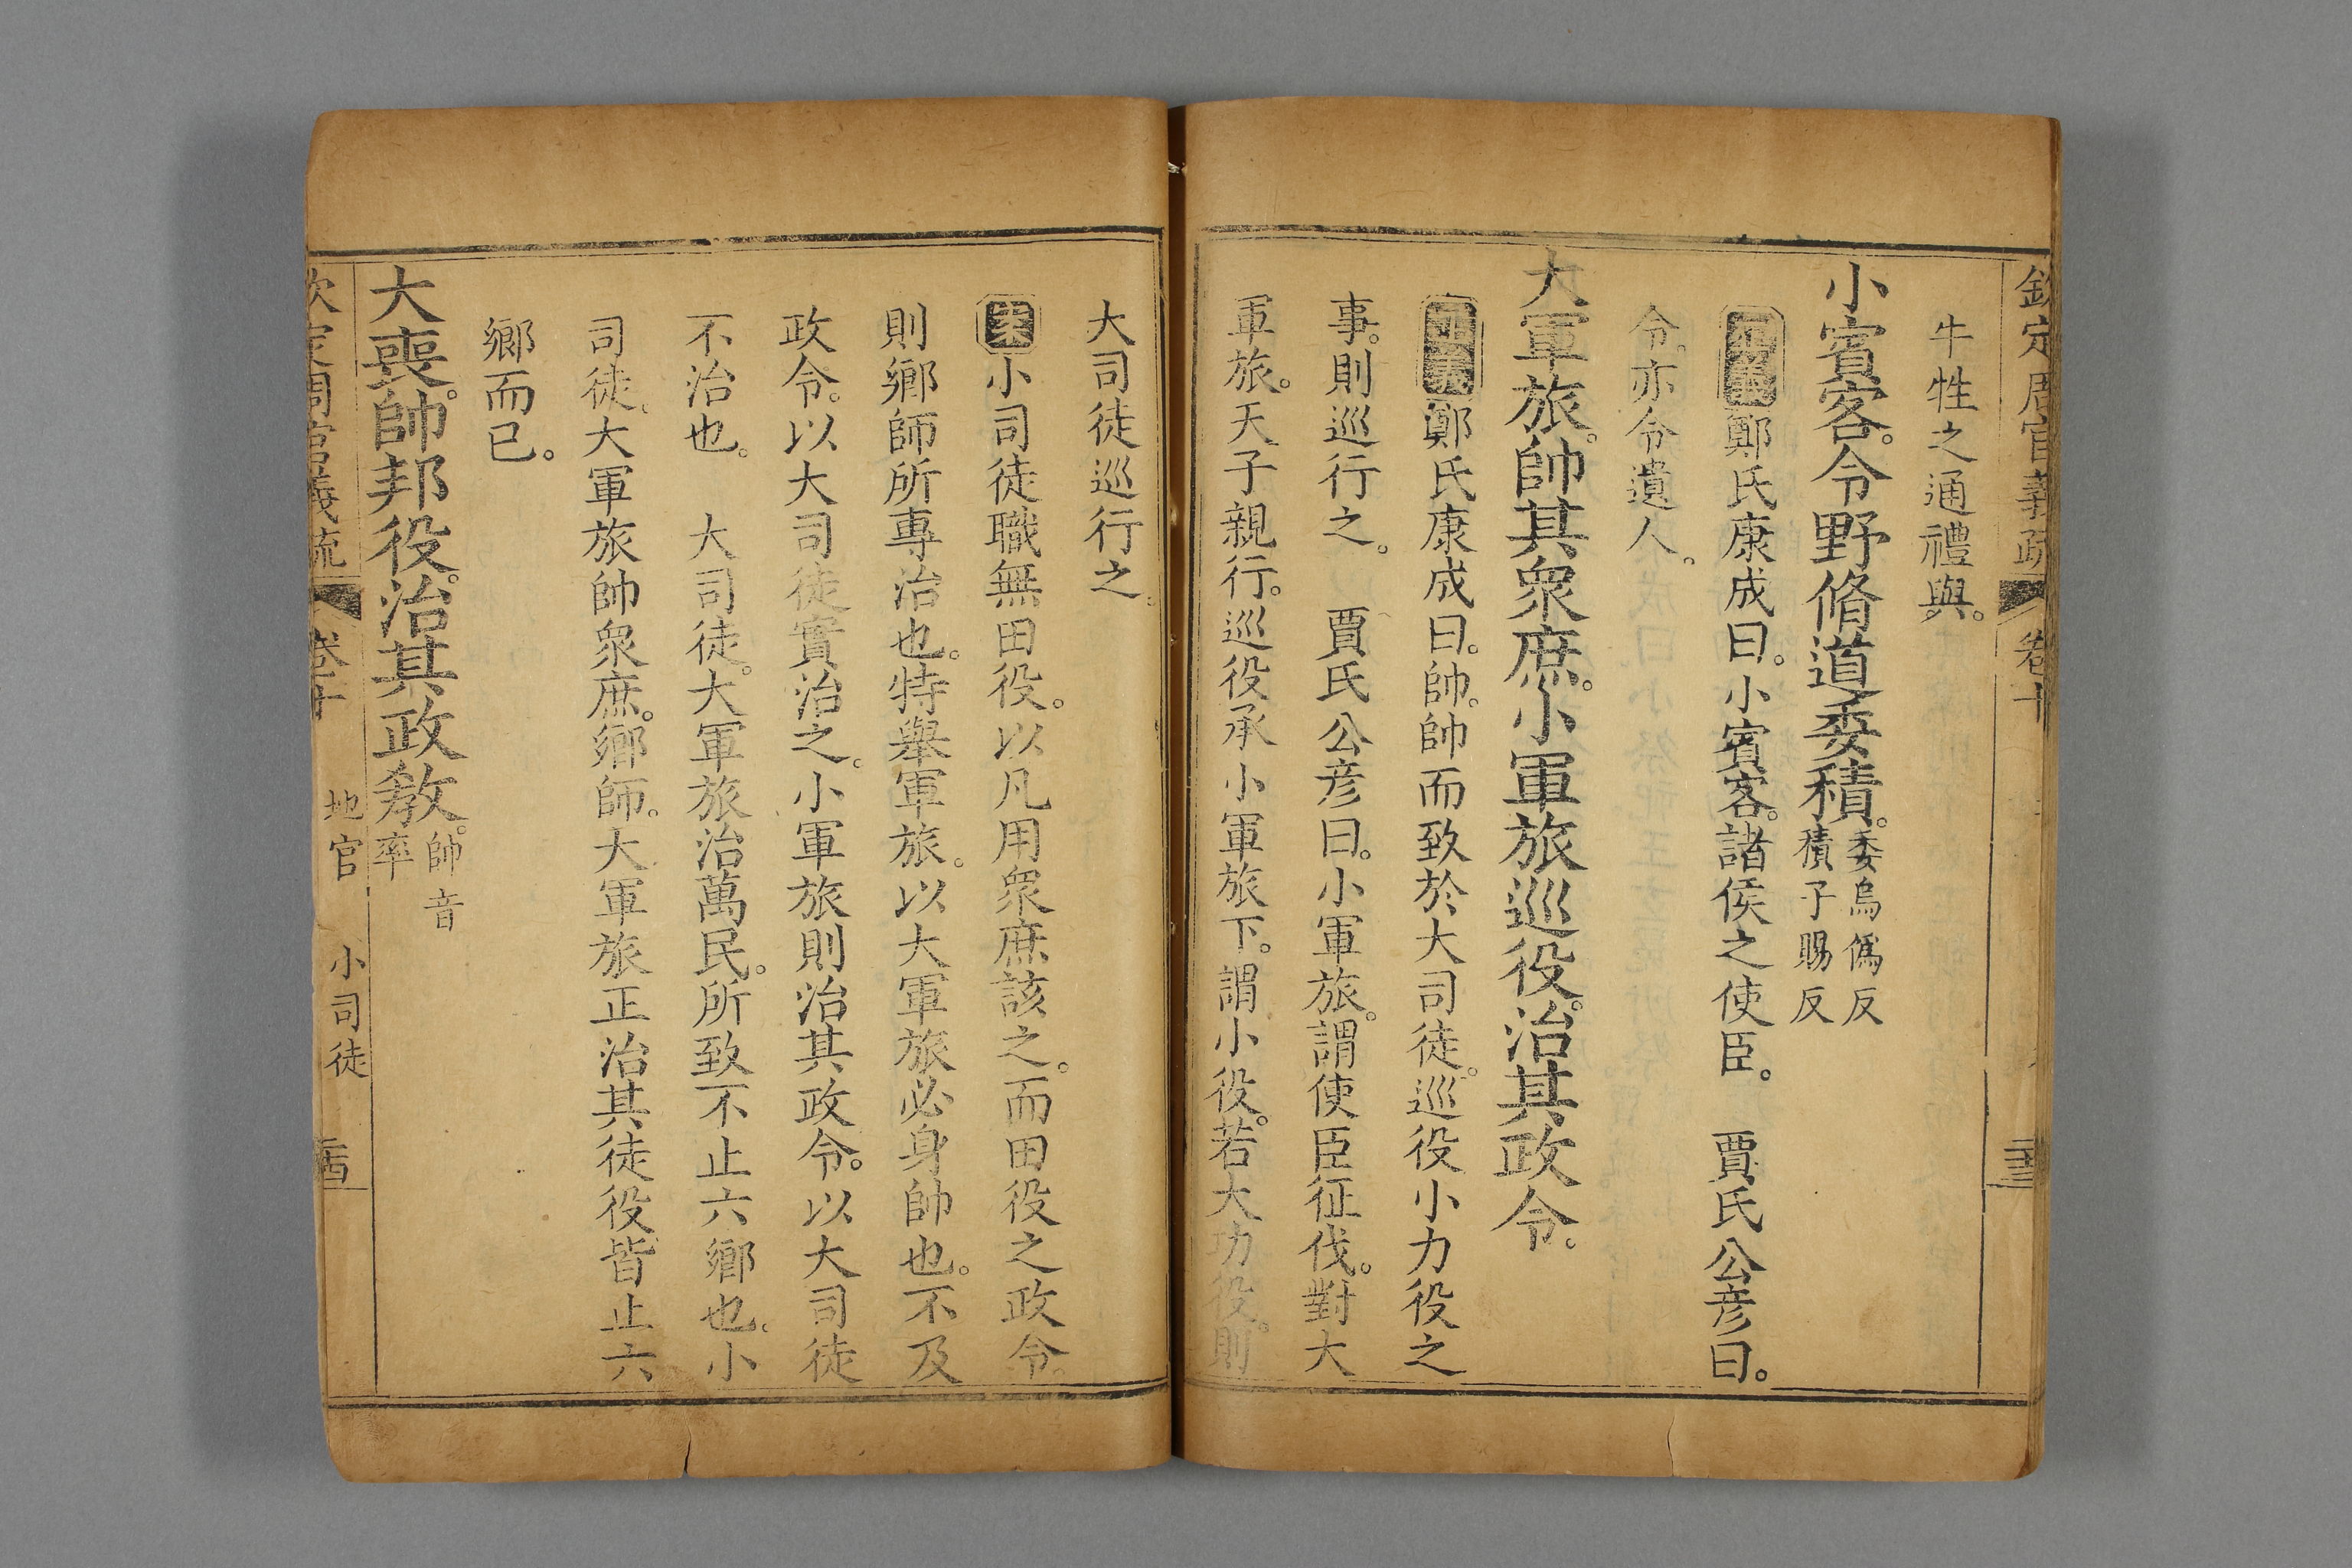 欽定周官義疏 卷十
牛牲之通禮與。
小賓客。令野脩道委積。委烏僞反 積子賜反
正義鄭氏康成曰。小賓客。諸侯之使臣。 賈氏公彦曰。
令。亦令遺人。
大軍旅。帥其衆庶。小軍旅巡役。治其政令。
正義鄭氏康成曰。帥。帥而致於大司徒。巡役小力役之
事。則巡行之。 賈氏公彦曰。小軍旅。謂使臣征伐。對大
軍旅。天子親行。巡役承小軍旅下。謂小役。若大功役。則
大司徒巡行之。
案小司徒職無田役。以凡用衆庶該之。而田役之政令。
則鄉師所專治也。特舉軍旅。以大軍旅必身帥也。不及
政令。以大司徒實治之。小軍旅則治其政令。以大司徒
不治也。 大司徒。大軍旅治萬民。所致不止六鄉也。小
司徒。大軍旅帥衆庶。鄉師。大軍旅正治其徒役。皆止六
鄉而已。
大喪。帥邦役。治其政教。帥音率
欽定周官義疏 卷十 地官 小司徒